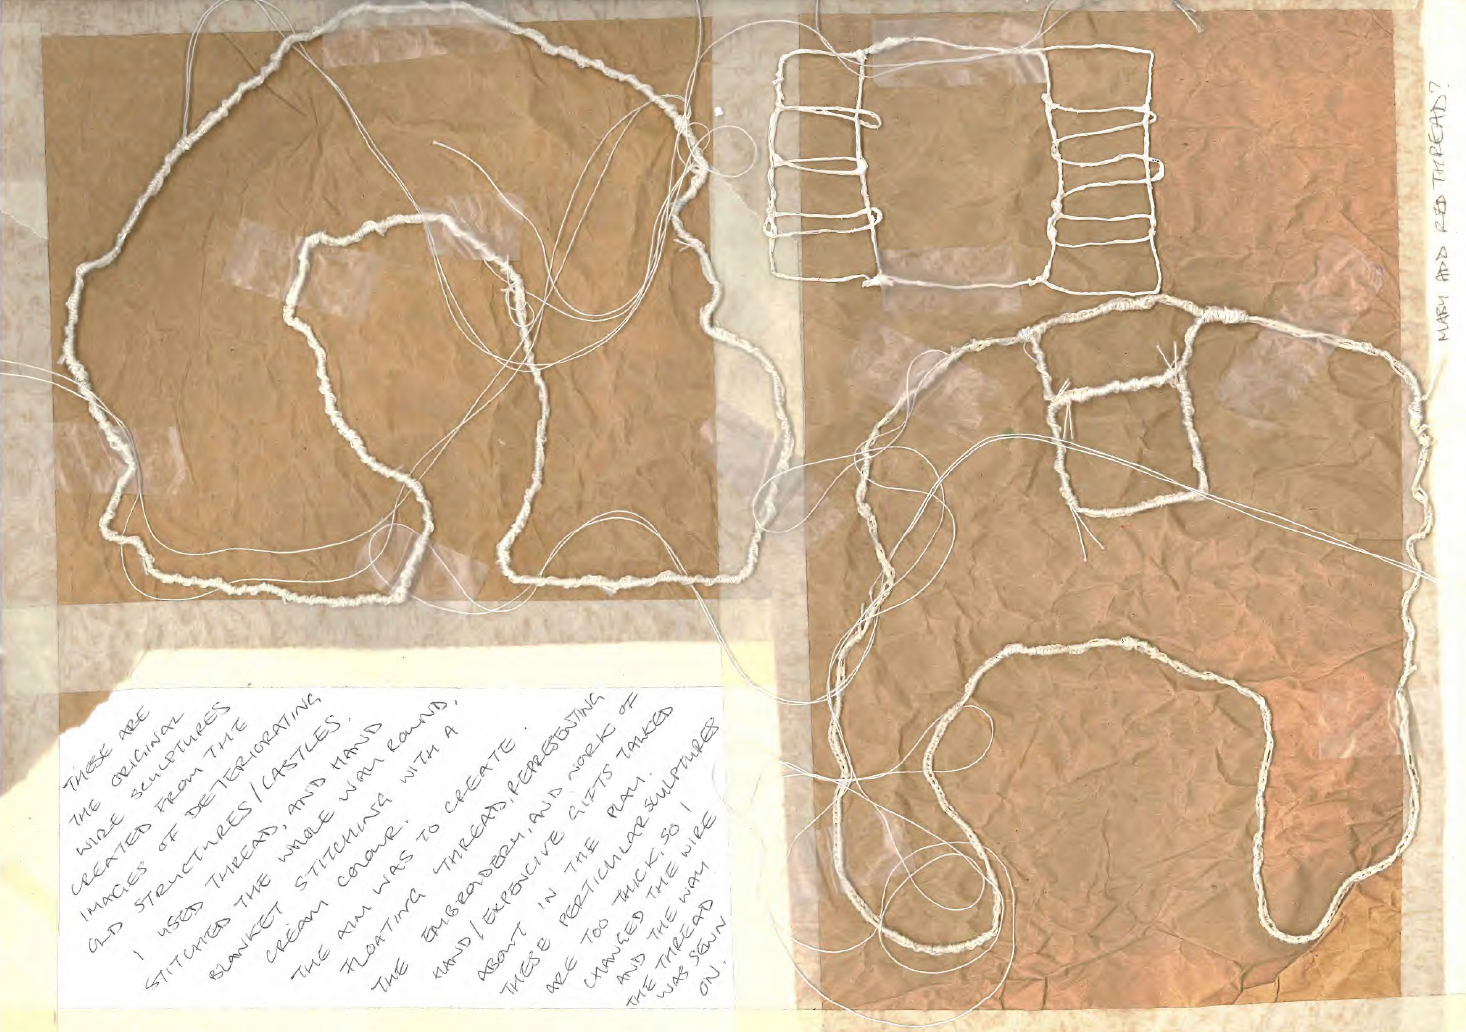 THESE ARE
THE ORIGINAL
WIRE SCULPTURES
CREATED FROM THE
IMAGES OF DETERIORATING
OLD STRUCTURES / CASTLES.
I USED THREAD, AND HAND
STITCHED THE WHOLE WAY ROUND,
BLANKET STITCHING WITH A
CREAM COLOUR.
THE AIM WAS TO CREATE
FLOATING THREAD, REPRESENTING
THE EMBROIDERY, AND WORK OF
HAND / EXPENCIVE GIFTS TALKED
ABOUT IN THE PLAY.
THESE PERTICULAR SCULPTURES
ARE TOO THICK, SO I
CHANGED THE WIRE
AND THE WAY
THE THREAD
WAS SEWN
ON.
MABY ADD RED THREAD?